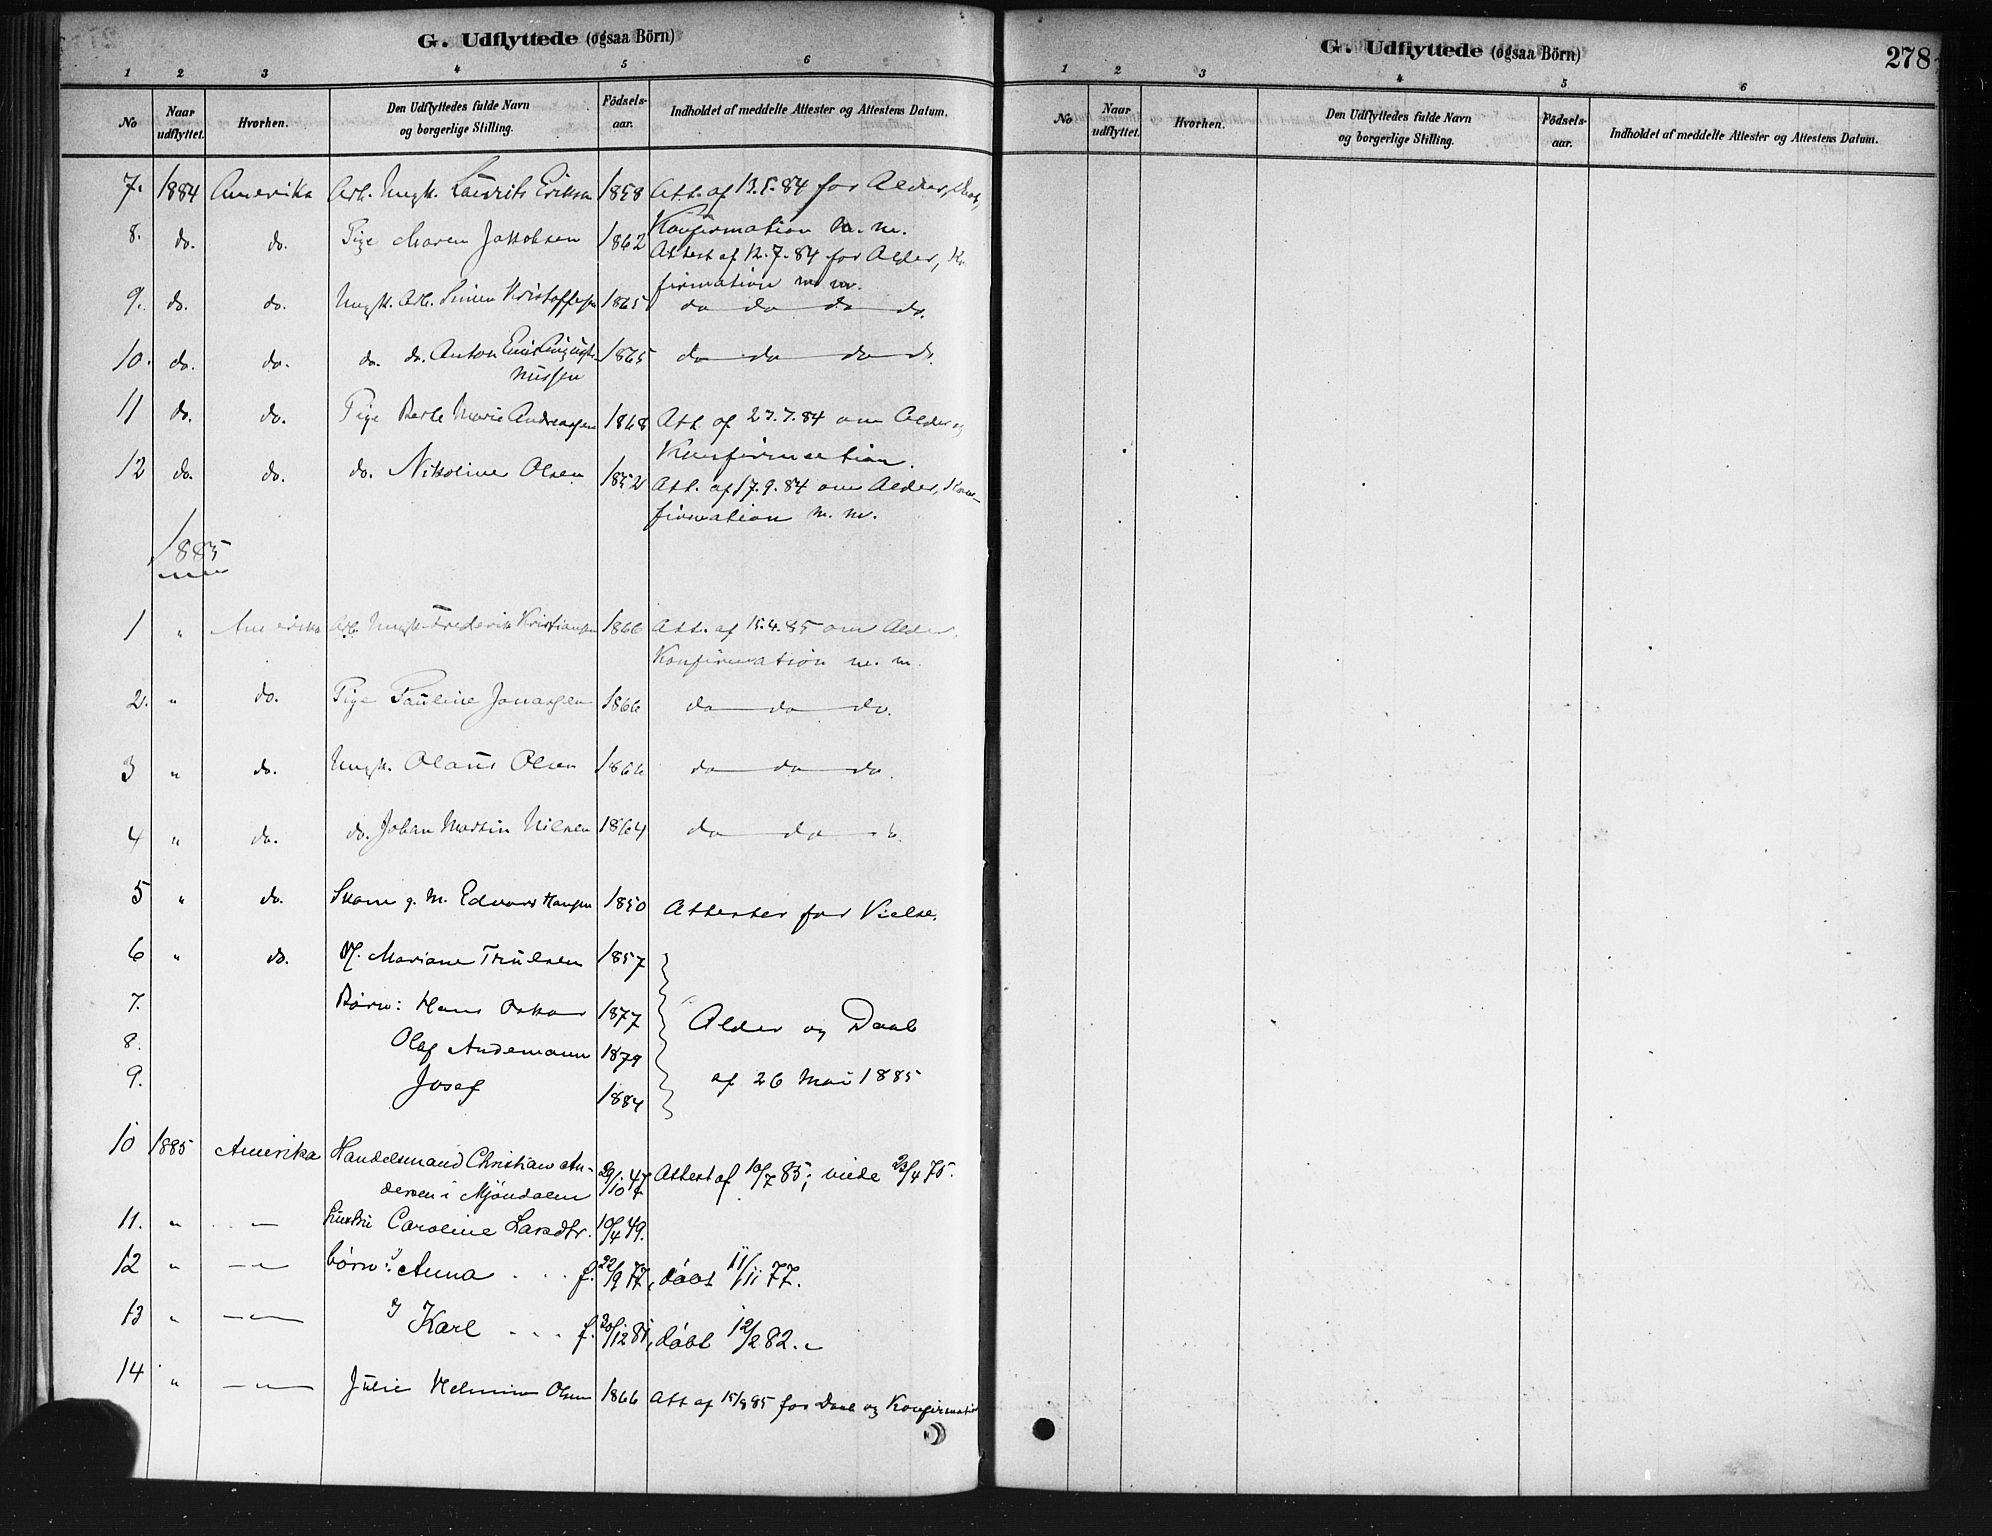 G. Udflyttede (ogsaa Börn)
1 2 3 4 5 6
No Naar udflyttet. Hvorhen. Den Udflyttedes fulde Navn og borgerlige Stilling. Födsels-aar. Indholdet af meddelte Attester og Attestens Datum.
7. 1884 Amerika Arb. Ungk. Laurits Eriksen 1858 Att. af 13.5.84 for Alder, Daab,
Konfirmation m. m.
8. do. do. Pige Maren Jakobsen 1862 Attest af 12.7.84 for Alder, Kon
firmation m. m.
9. do. do. Ungk. Arb. Simen Kristoffersen 1865 do do do do.
10. do. do. do. do. Anton 1865 do do do do.
11 do. do. Pige Berte Marie Andreassen 1868 Att. af 27.7.84 om Alder og
Konfirmation.
12 do. do. do. Nikoline Olsen 1852 Att. af 17.9.84 om Alder, Kon-
firmation m. m.
1885
1 " Amerika Arb. Ungk. Frederik Kristiansen 1866 Att. af 15.4.85 om Alder,
Konfirmation m. m.
2. " do. Pige Pauline Jonassen 1866 do do do.
3 " do. Ungk. Olaus Olsen 1866 do do do.
4 " do. do. Johan Martin Nilsen 1864 do do do.
5 " do. Skom. g. M. Edvard Hansen 1850 Attester for Vielse.
6 " do. H. Mariane Truelsen 1857
7. Börn: Hans Oskar 1877 Alder og Daab
8. Olaf Andemann 1879
9. Josef 1884 af 26 Mai 1885
10 1885 Amerika Handelsmand Christian An-
dersen i Mjöndalen 29/10 47 Attest af 10/7 85; viede 23/4 75.
11. " — Hustru Caroline Larsdtr. 10/4 49.
12 " — börn: Anna . . . f. 22/9 77, döbt 11/11 77.
13 " — Karl . . . f. 20/12 81, döbt 12/2 82.
14 " — Julie Helmine Olsen 1866 Att af 15/8 85 for Daab og Konfirmation
G. Udflyttede (ogsaa Börn)
278
1 2 3 4 5 6
No Naar udflyttet. Hvorhen. Den Udflyttedes fulde Navn og borgerlige Stilling. Födsels-aar. Indholdet af meddelte Attester og Attestens Datum.